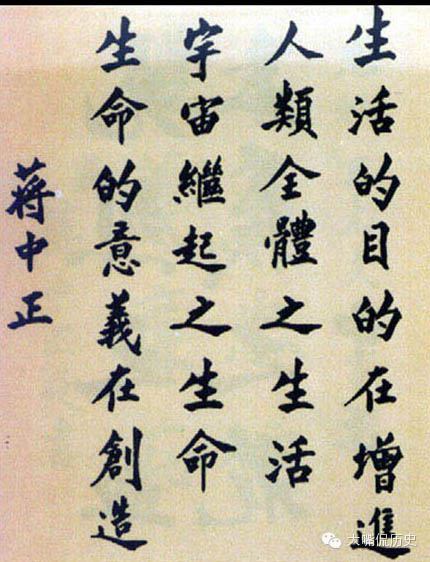 生活的目的在增進
人類全體之生活
宇宙繼起之生命
生命的意義在創造
蔣中正
大嘴侃历史